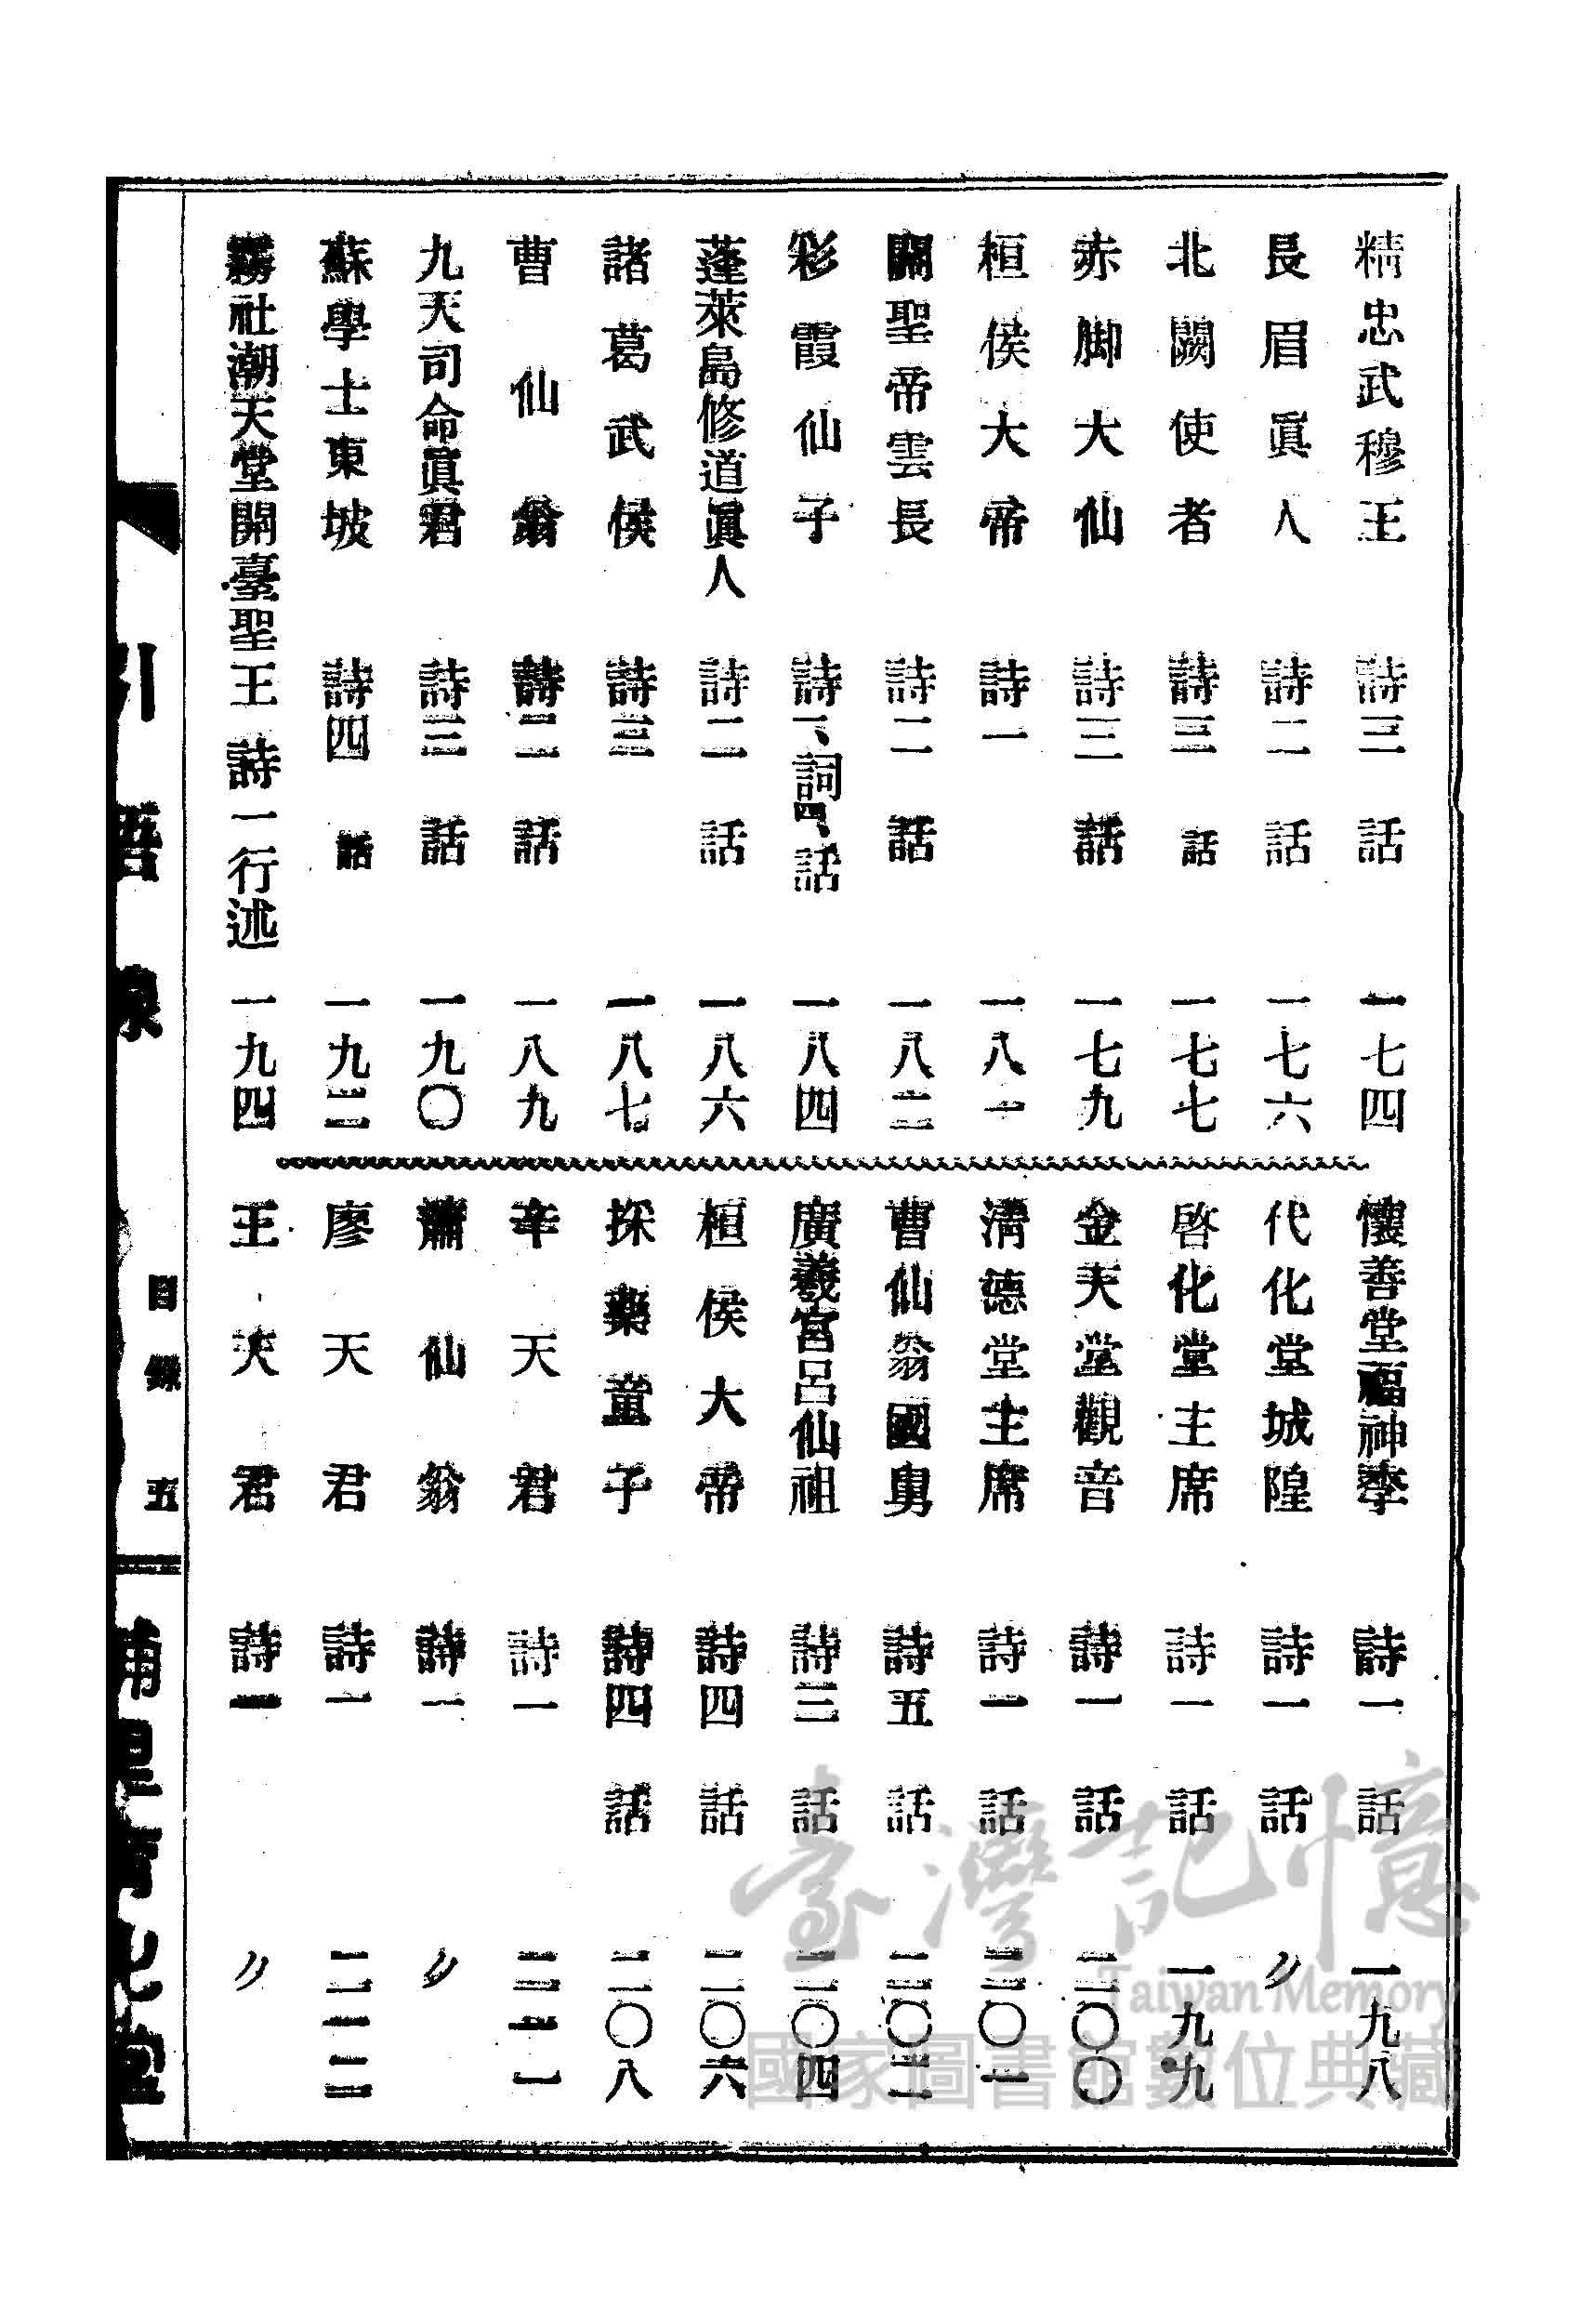 精忠武穆王 詩三 話 一七四
長眉眞人 詩二 話 一七六
北闕使者 詩三 話 一七七
赤脚大仙 詩三 話 一七九
桓侯大帝 詩一 一八一
關聖帝雲長 詩二 話 一八二
彩霞仙子 詩一、詞四、話 一八四
蓬萊島修道眞人 詩二 話 一八六
諸葛武侯 詩三 一八七
曹仙翁 詩二 話 一八九
九天司命眞君 詩三 話 一九〇
蘇學士東坡 詩四 話 一九二
霧社潮天堂開臺聖王 詩一行述 一九四
懷善堂福神李 詩一 話 一九八
代化堂城隍 詩一 話 〃
啓化堂主席 詩一 話 一九九
金天堂觀音 詩一 話 二〇〇
淸德堂主席 詩一 話 二〇一
曹仙翁國舅 詩五 話 二〇二
廣義宮呂仙祖 詩三 話 二〇四
桓侯大帝 詩四 話 二〇六
採藥童子 詩四 話 二〇八
辛天君 詩一 二一一
蕭仙翁 詩一 〃
廖天君 詩一 二一二
王天君 詩一 〃
引悟線 目錄 五 埔里育化堂
臺灣記憶
Taiwan Memory
國家圖書館數位典藏